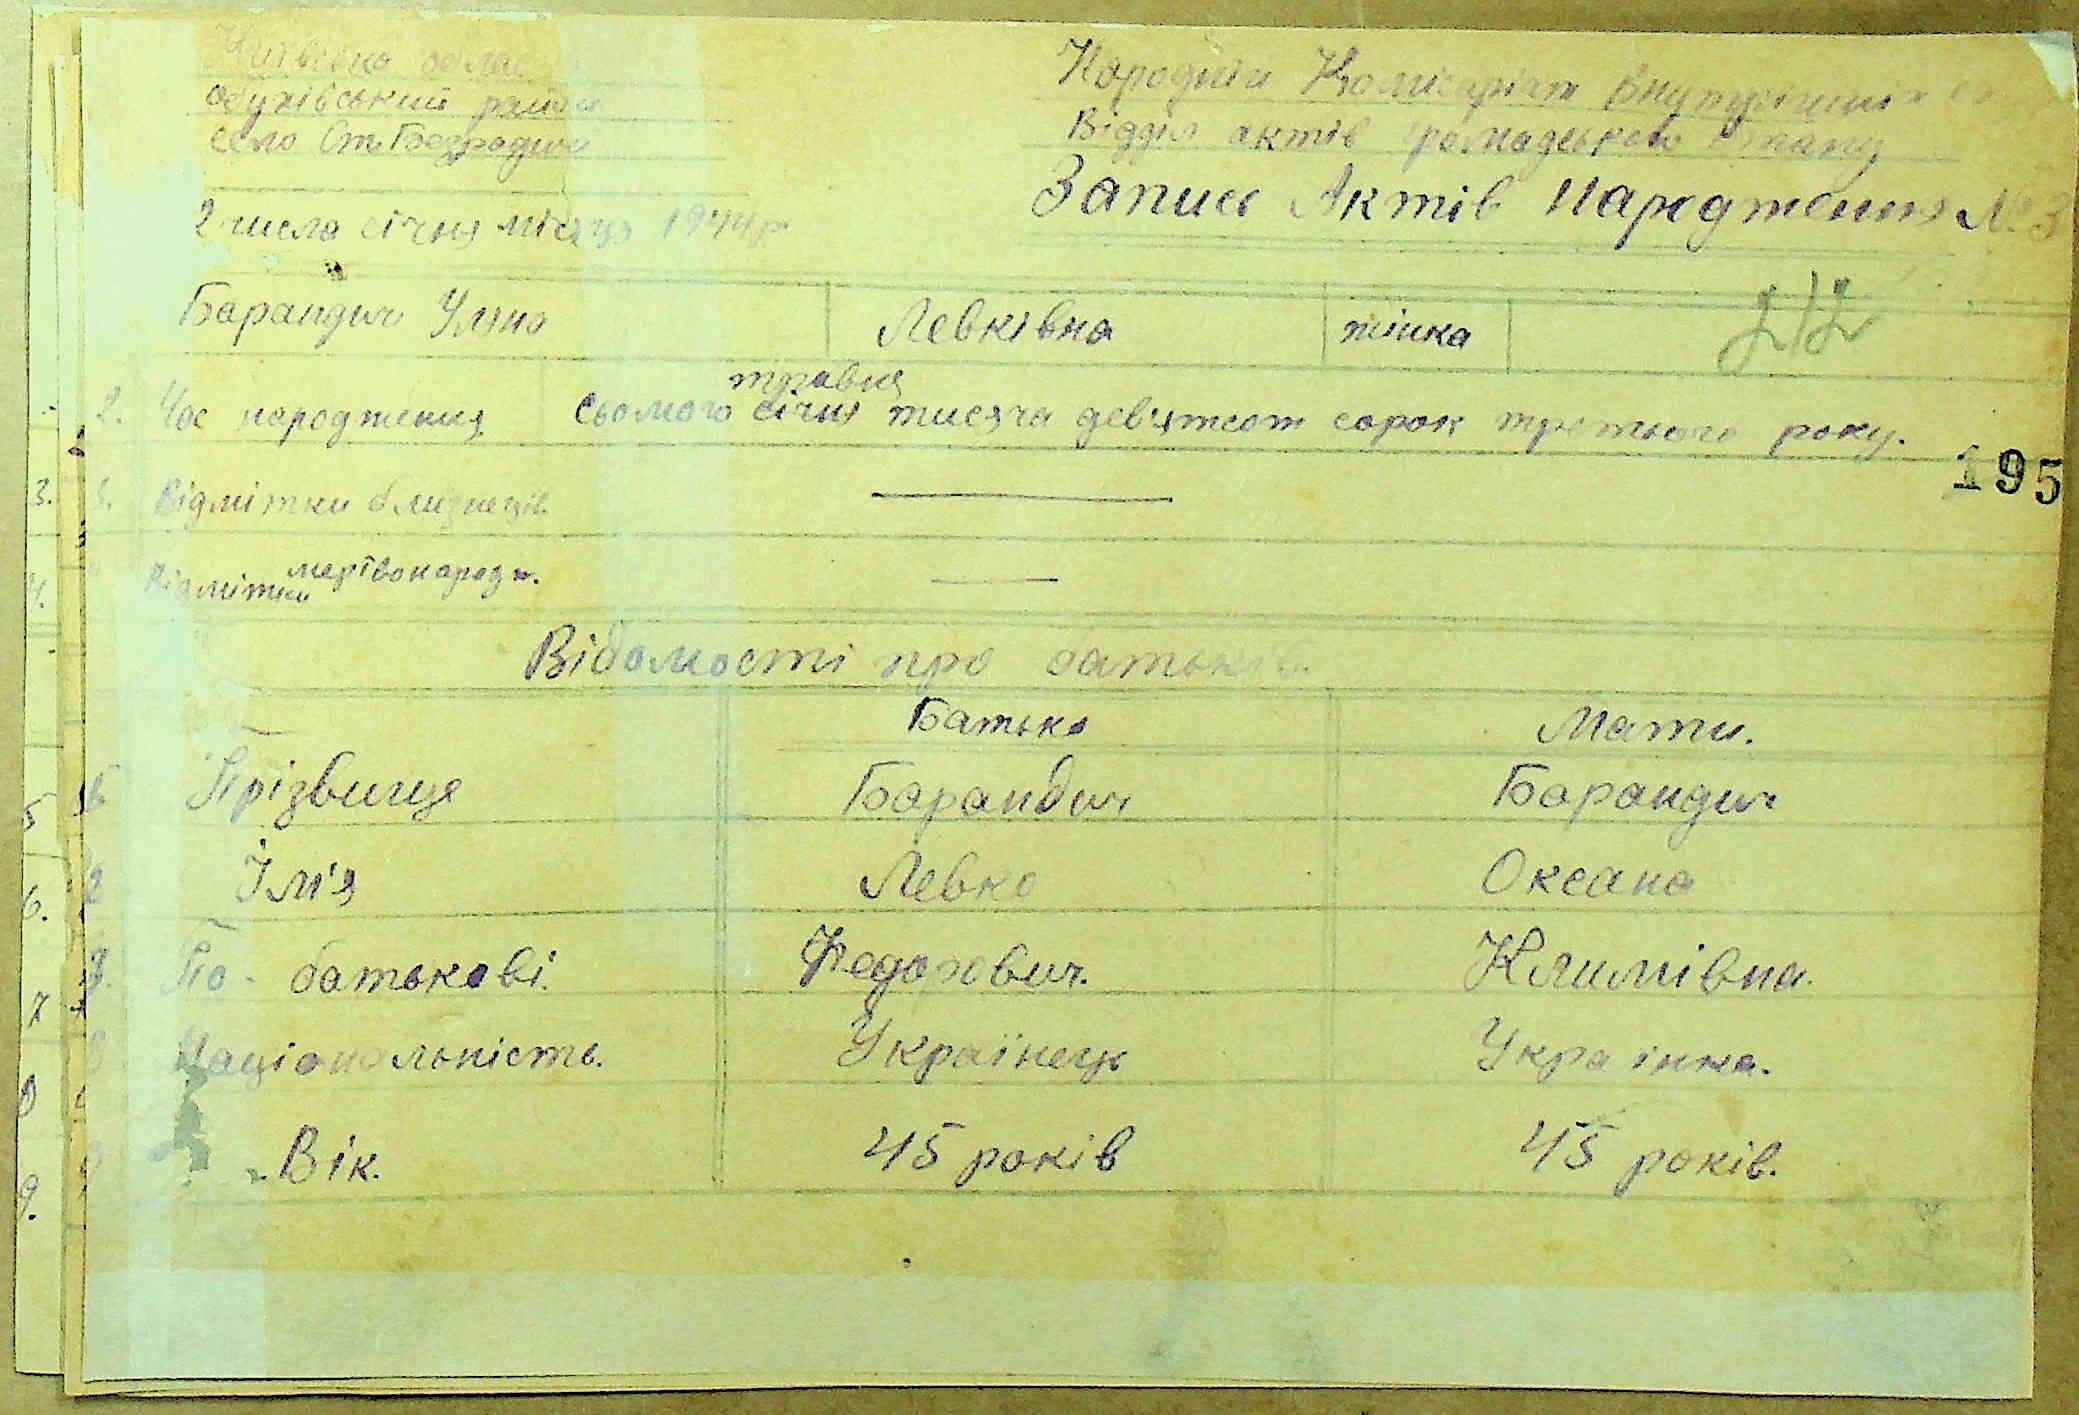 Київська область
Обухівський район
село Ст. Безрадичи
2 числа січня місяця 1944 р
Народній Комісаріят Внутрішніх
Відділ актів громадського стану
Запись Актів Народження № 3
Барандич Уляна Левківна жінка
травня
2. Час народження сьомого січня тисяча девятсот сорок третього року.
195
3. 3. Відмітки близнеців.
4. Відмітки мертвонародж.
Відомості про батьків
Батько Мати.
5 Прізвище Барандич Барандич
6. 2 Їм'я Левко Оксана
7 3. По-батькові. Федорович. Климівна.
8 Національність. Українець Українка.
9. Вік. 45 років 45 років.